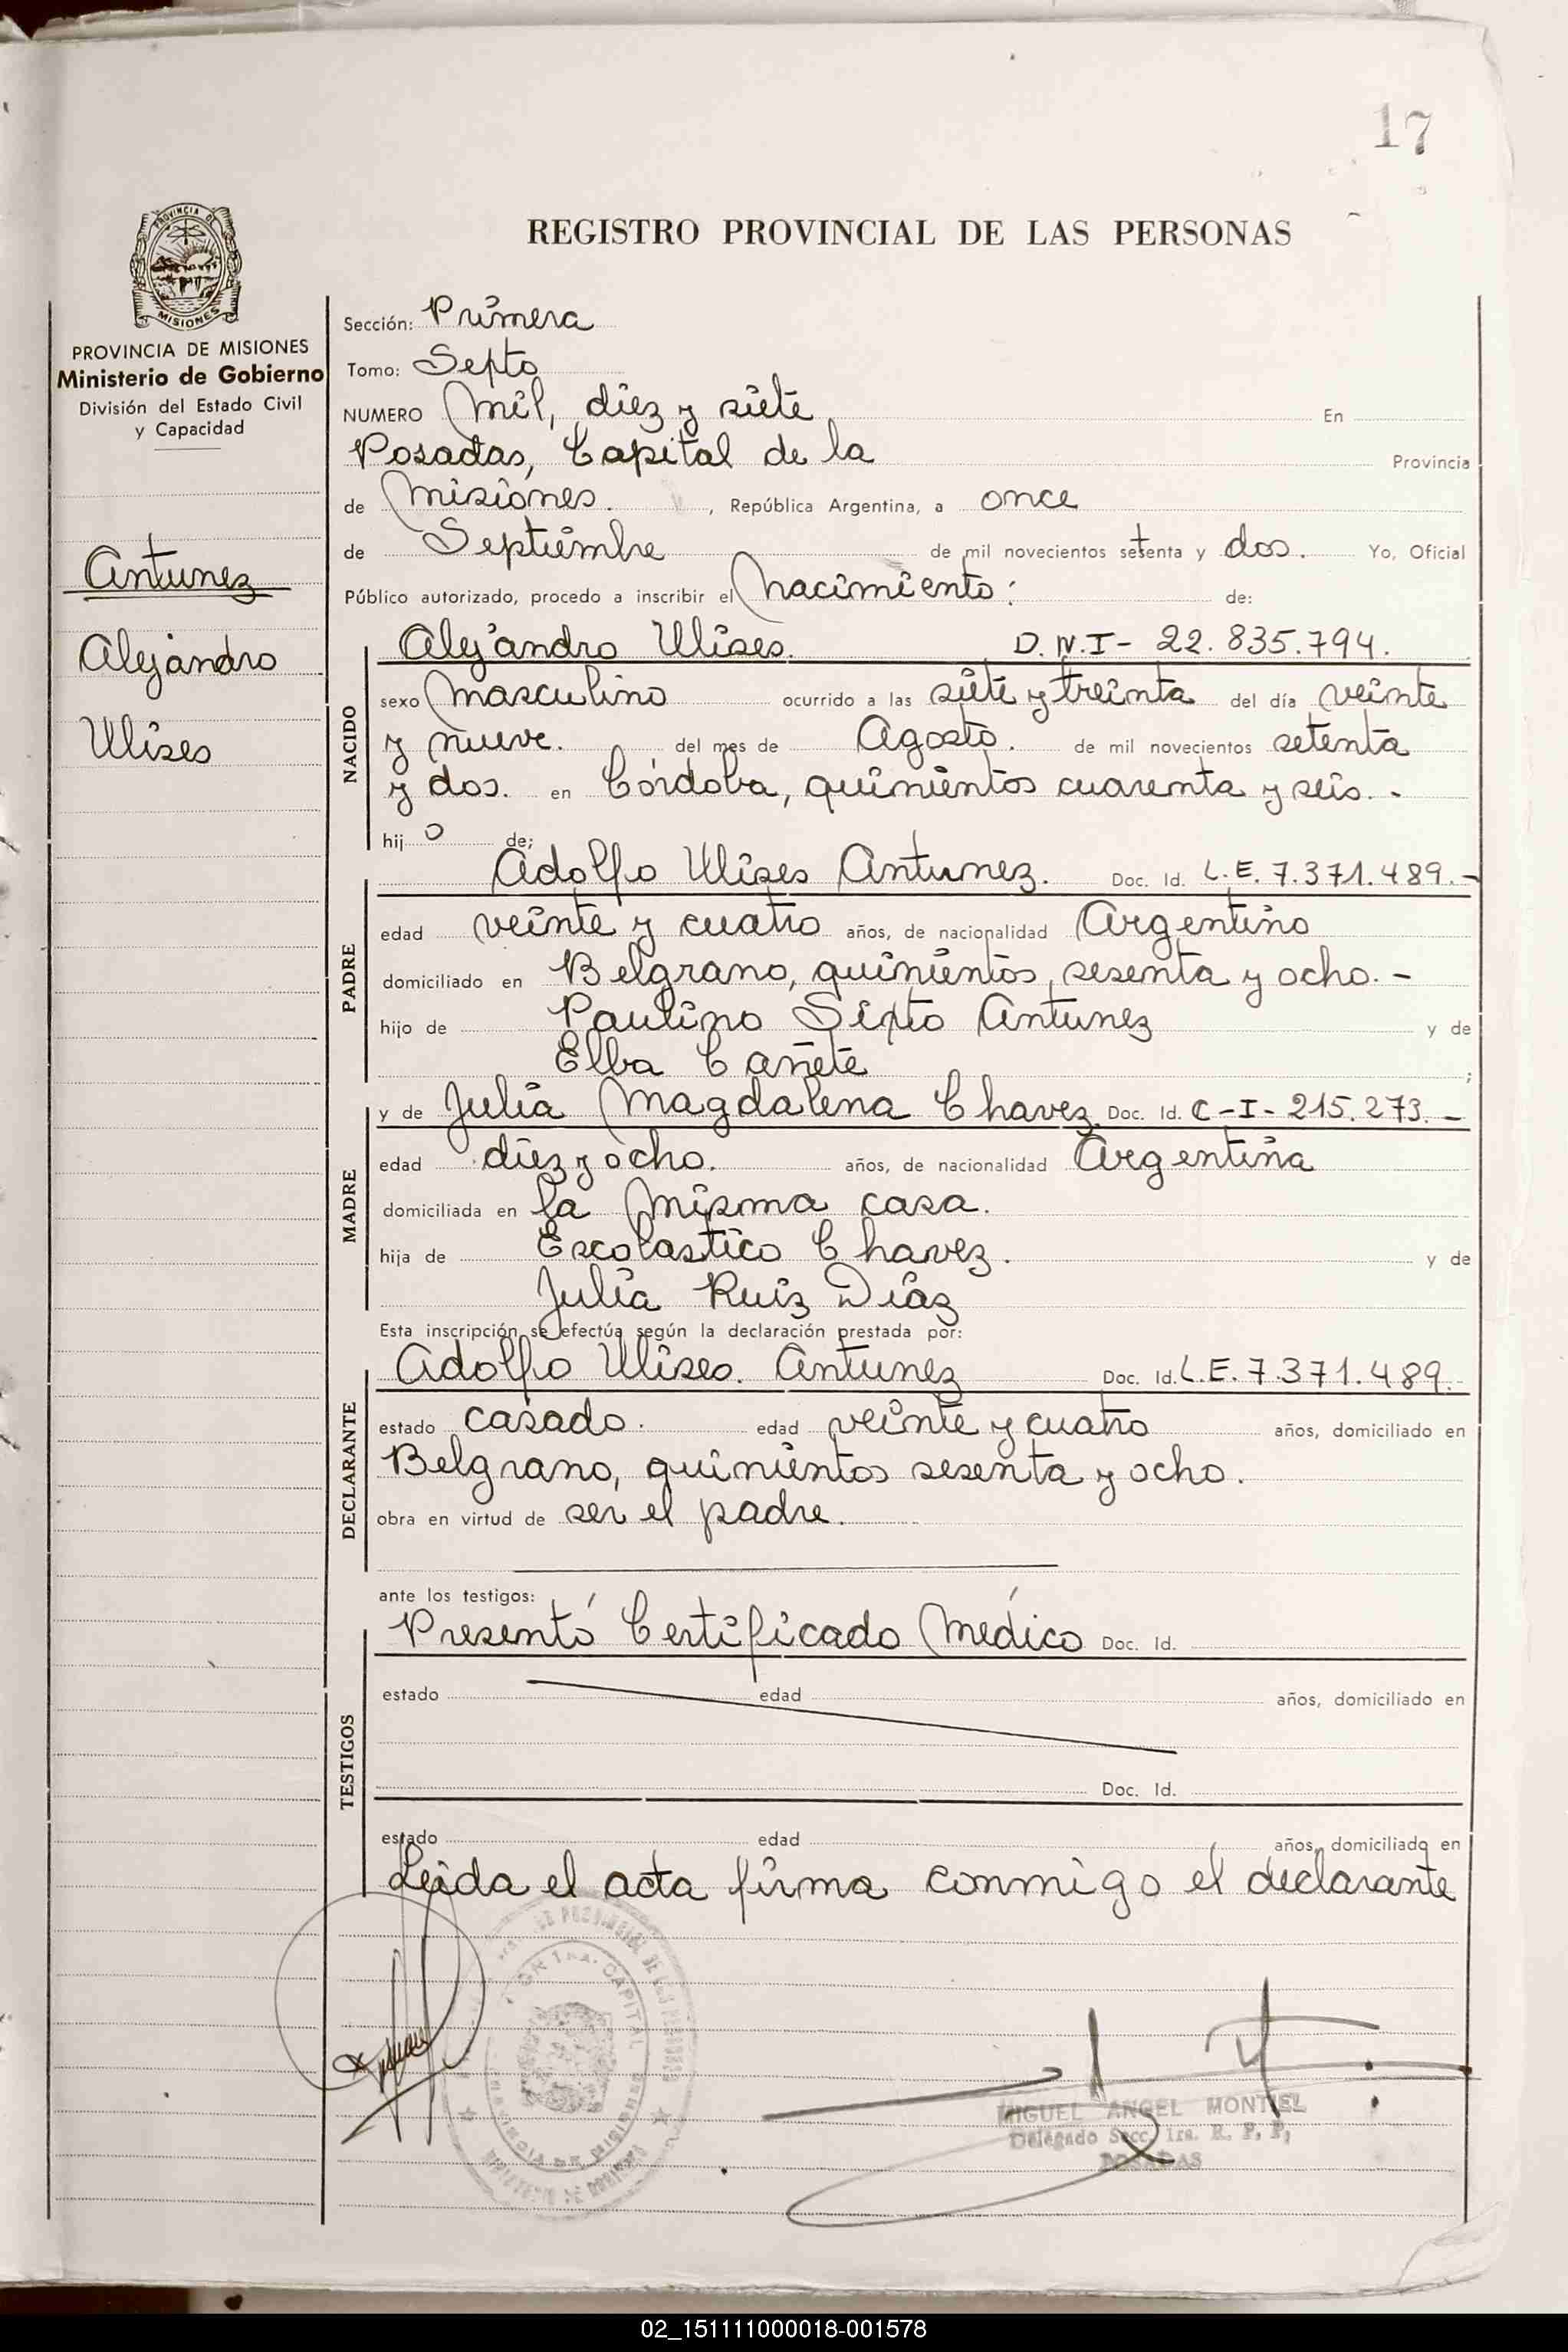 17
REGISTRO PROVINCIAL DE LAS PERSONAS
PROVINCIA DE
MISIONES
PROVINCIA DE MISIONES
Ministerio de Gobierno
División del Estado Civil
y Capacidad
Antunez
Alejandro
Ulises
Sección: Primera
Tomo: Septo
NUMERO Mil, diez y siete En
Posadas, Capital de la Provincia
de Misiones. , República Argentina, a once
de Septiembre de mil novecientos setenta y dos. Yo, Oficial
Público autorizado, procedo a inscribir el Nacimiento: de:
NACIDO
Alejandro Ulises. D.N.I- 22.835.794.
sexo Masculino ocurrido a las siete y treinta del día veinte
y nueve. del mes de Agosto. de mil novecientos setenta
y dos. en Córdoba, quinientos cuarenta y seis.-
hij o de;
PADRE
Adolfo Ulises Antunez. Doc. Id. L.E. 7.371.489.-
edad veinte y cuatro años, de nacionalidad Argentino
domiciliado en Belgrano, quinientos, sesenta y ocho.-
hijo de Paulino Sixto Antunez y de
Elba Cañete ;
MADRE
y de Julia Magdalena Chavez Doc. Id. C-I- 215.273.-
edad diez y ocho. años, de nacionalidad Argentina
domiciliada en la misma casa.
hija de Escolastico Chavez. y de
Julia Ruiz Diaz
Esta inscripción se efectúa según la declaración prestada por:
DECLARANTE
Adolfo Ulises. Antunez Doc. Id. L.E. 7.371.489.-
estado casado. edad veinte y cuatro años, domiciliado en
Belgrano, quinientos sesenta y ocho.
obra en virtud de ser el padre.
ante los testigos:
TESTIGOS
Presentó Certificado Médico Doc. Id.
estado edad años, domiciliado en
Doc. Id.
estado edad años, domiciliado en
Leida el acta firma conmigo el declarante
MIGUEL ANGEL MONTIEL
Delegado Secc. 1ra. R. P. P.
POSADAS
02_151111000018-001578